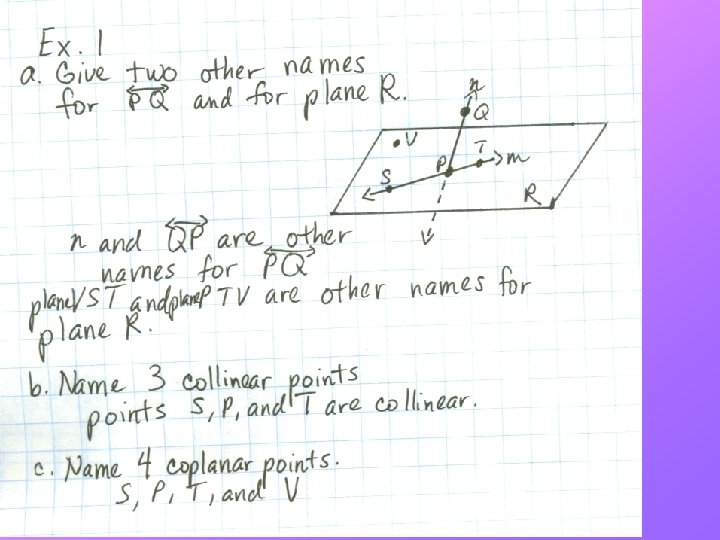 Ex. 1
a. Give two other names
for PQ and for plane R.
n
Q
V
T
m
P
S
R
n and QP are other
names for PQ
plane VST and plane PTV are other names for
plane R.
b. Name 3 collinear points
points S, P, and T are collinear.
c. Name 4 coplanar points.
S, P, T, and V